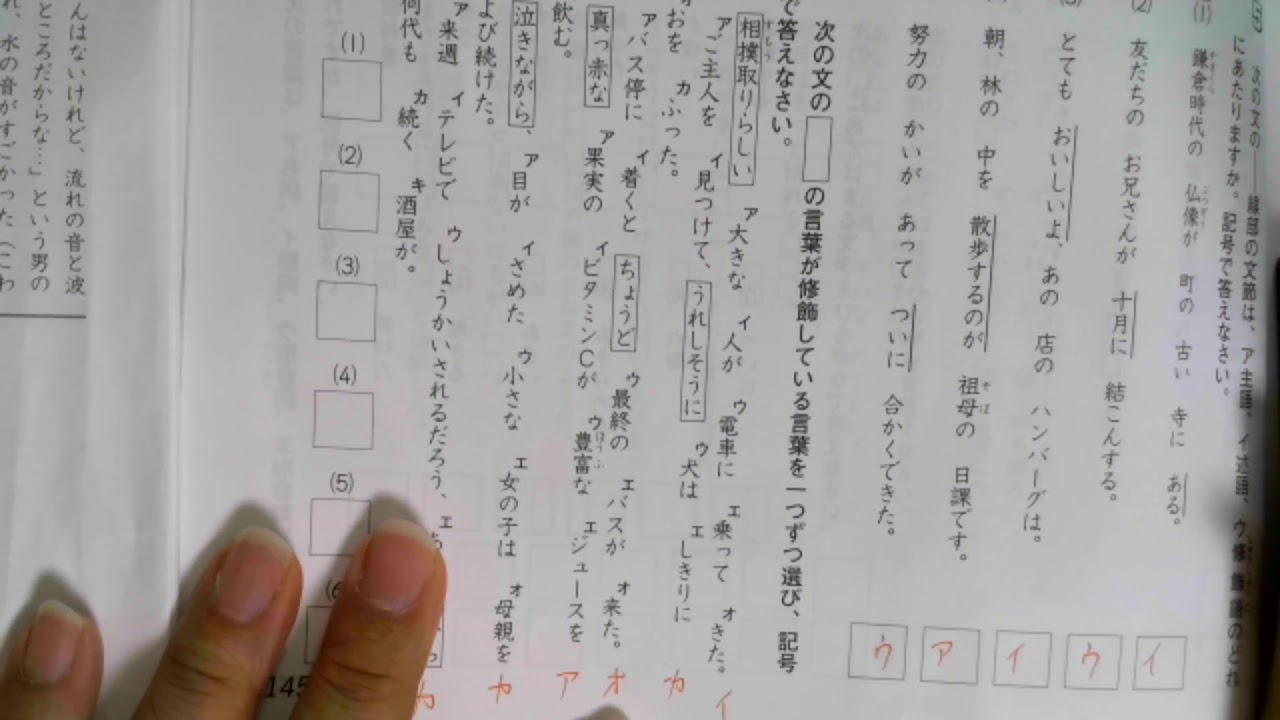 次の文の――線部の文節は、ア主語、イ述語、ウ修飾語のどれ
にあたりますか。記号で答えなさい。
(1) 鎌倉時代の 仏像が 町の 古い 寺に ある。
(2) 友だちの お兄さんが 十月に 結こんする。
とても おいしいよ、あの 店の ハンバーグは。
朝、林の 中を 散歩するのが 祖母の 日課です。
努力の かいが あって ついに 合かくできた。
イ
ウ
イ
ア
ウ
次の文の□の言葉が修飾している言葉を一つずつ選び、記号
で答えなさい。
相撲取りらしい ア大きな イ人が ウ電車に エ乗って オきた。 イ
アご主人を イ見つけて、うれしそうに ウ犬は エしきりに
おを カふった。 カ
アバス停に イ着くと ちょうど ウ最終の エバスが オ来た。 オ
真っ赤な ア果実の イビタミンCが ウ豊富な エジュースを ア
飲む。
泣きながら、ア目が イさめた ウ小さな エ女の子は オ母親を カ
よび続けた。
ア来週 イテレビで ウしょうかいされるだろう、エ
何代も カ続く キ酒屋が。
(1)
(2)
(3)
(4)
(5)
145
んはないけれど、流れの音と波
ところだからな…」という男の
れ、水の音がすごかった(こわ